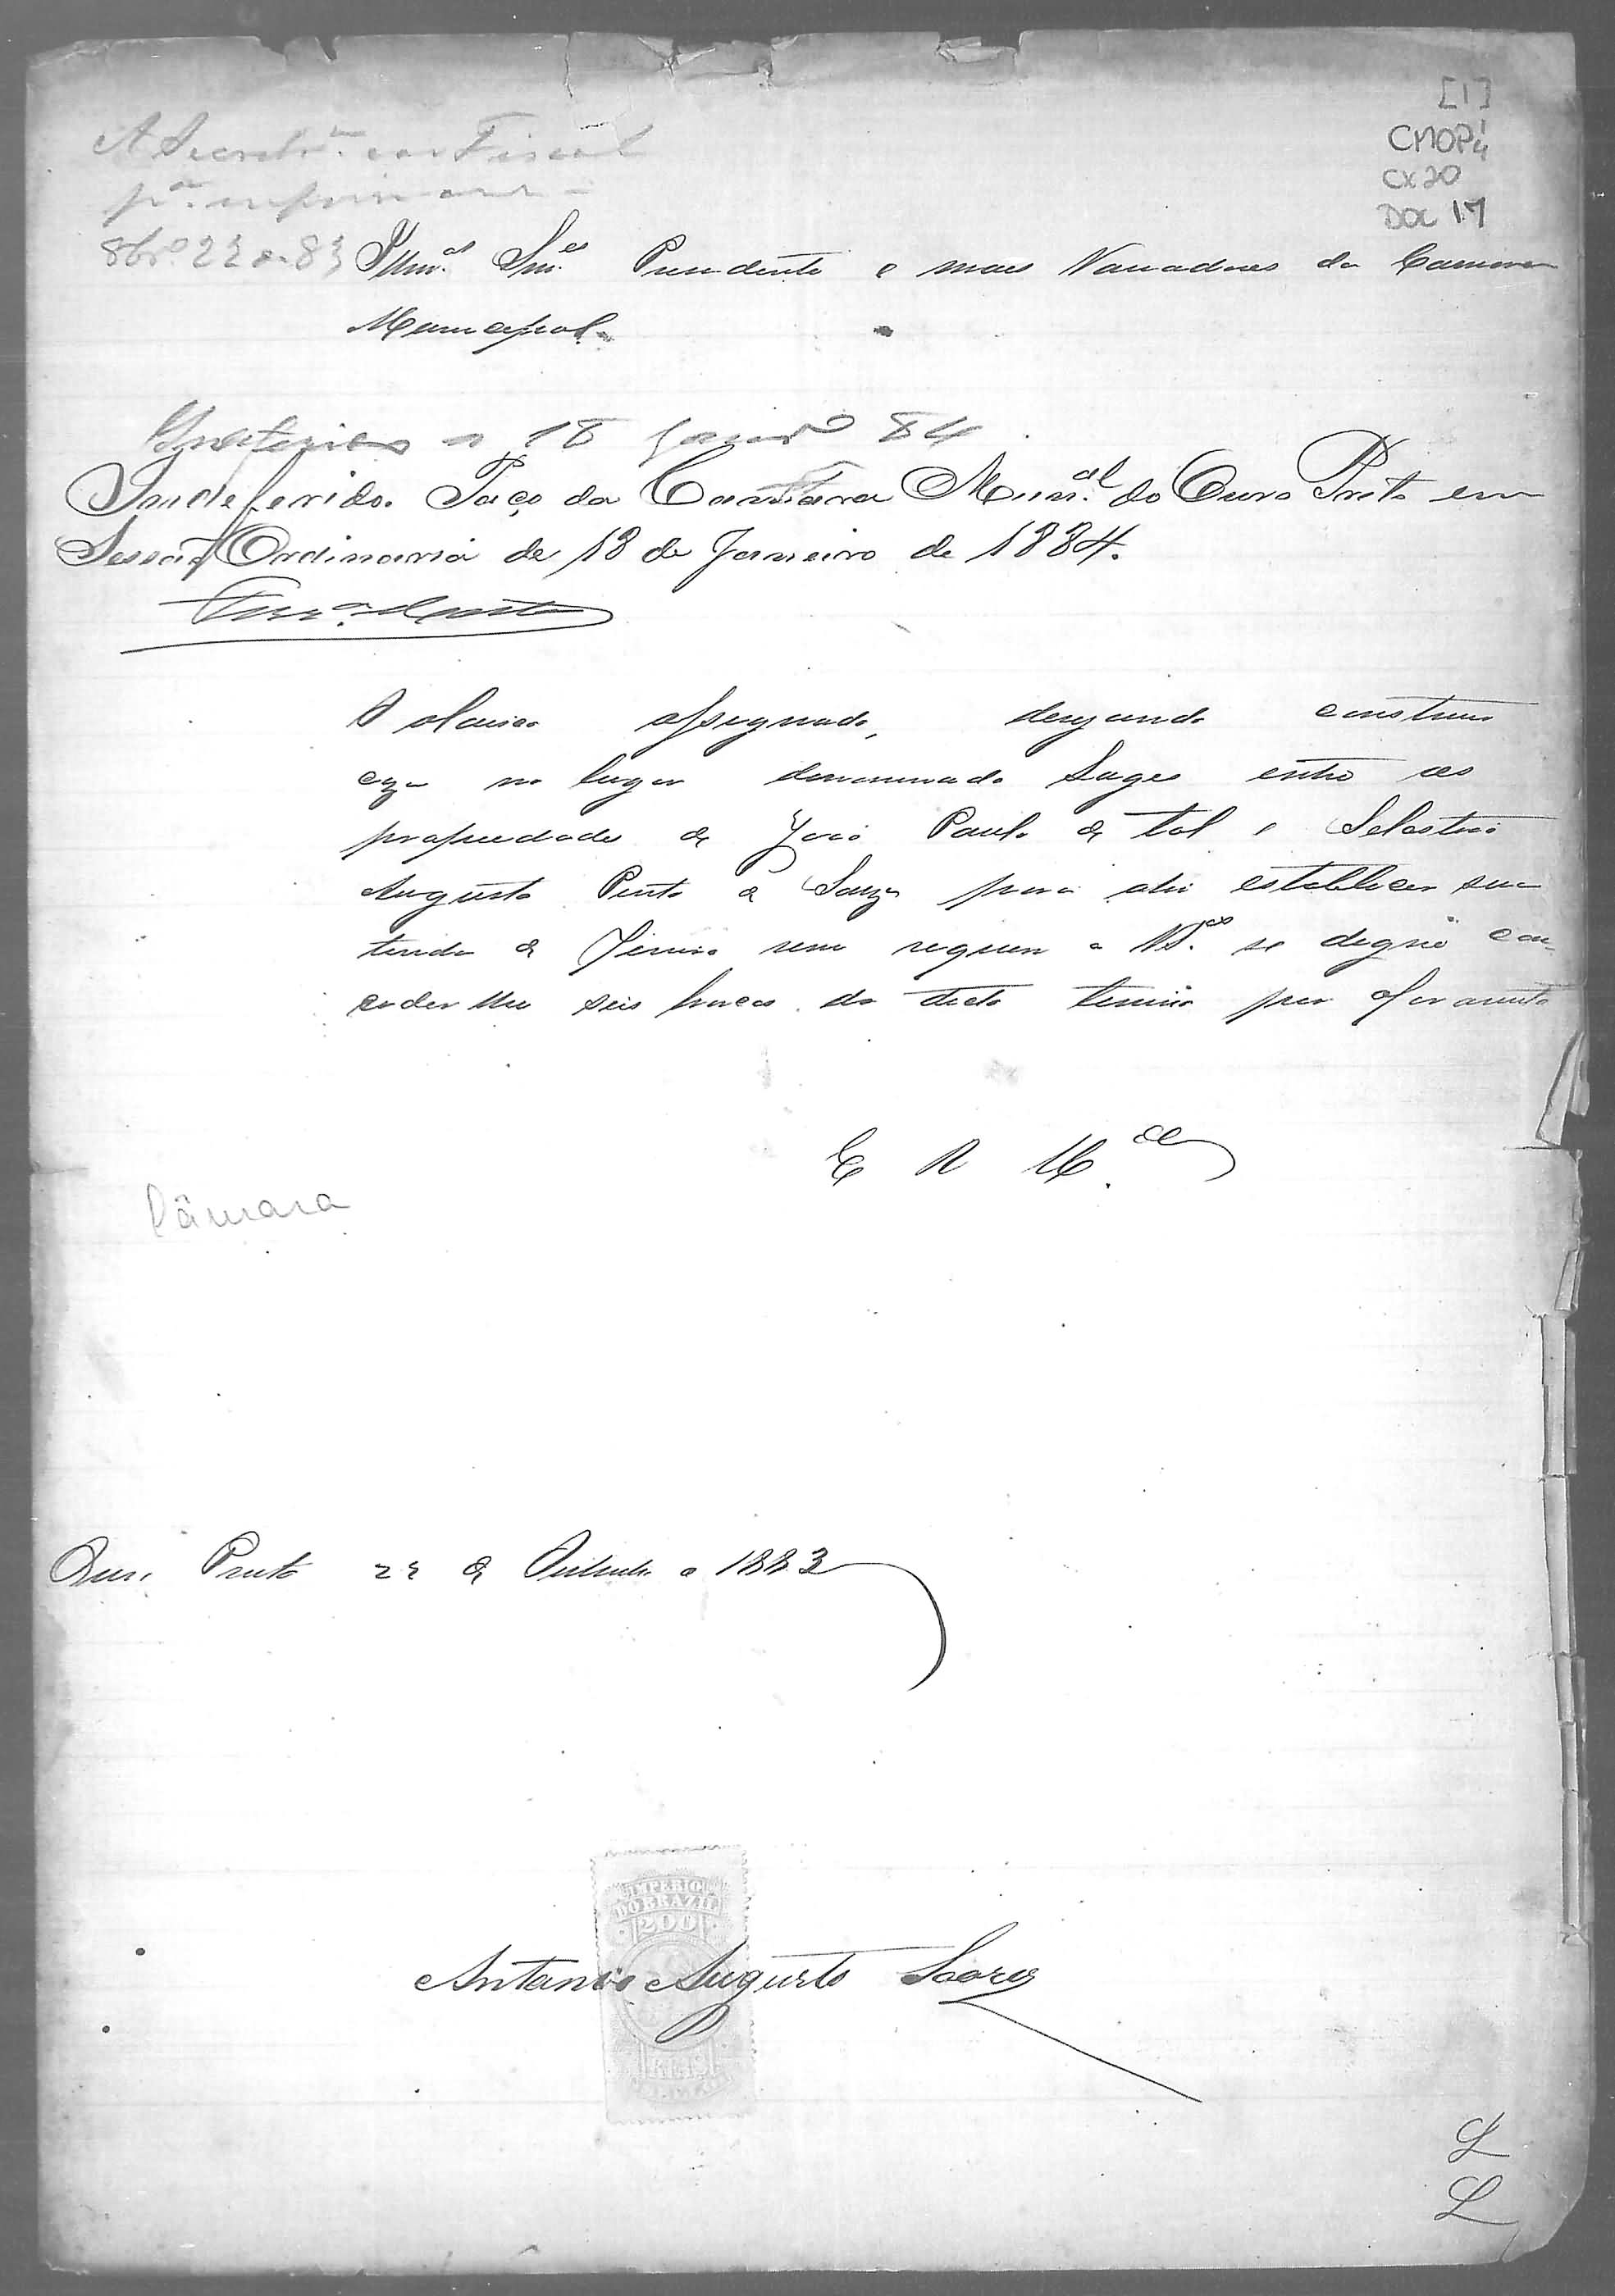 [1]
CMOP
CX20
DOC 17
A Secretrª. Fiscal
pª. informarem
8brº 22 de 83
Illmos. Snres. Presidente e mais Vereadores da Camara
Municipal.
Indeferido 18 Janrº 84
Indeferido. Paço da Camara Munal. do Ouro Preto em
Sessaõ Ordinaria de 18 de Janeiro de 1884.
O abaixo assignado, desejando construir
caza no lugar denominado Lages entre as
propriedades de João Paulo de tal e Sebastião
Augusto Pinto de Souza para ahi establecer sua
tenda de ferreiro vem requerer a VSas. se dignē con-
ceder lhe seis braças do dicto terreno por aforamento
E R Mce
Câmara
Ouro Preto 22 de Outubro de 1883
IMPERIO
DO BRAZIL
200
REIS
Antonio Augusto Soares
L
L